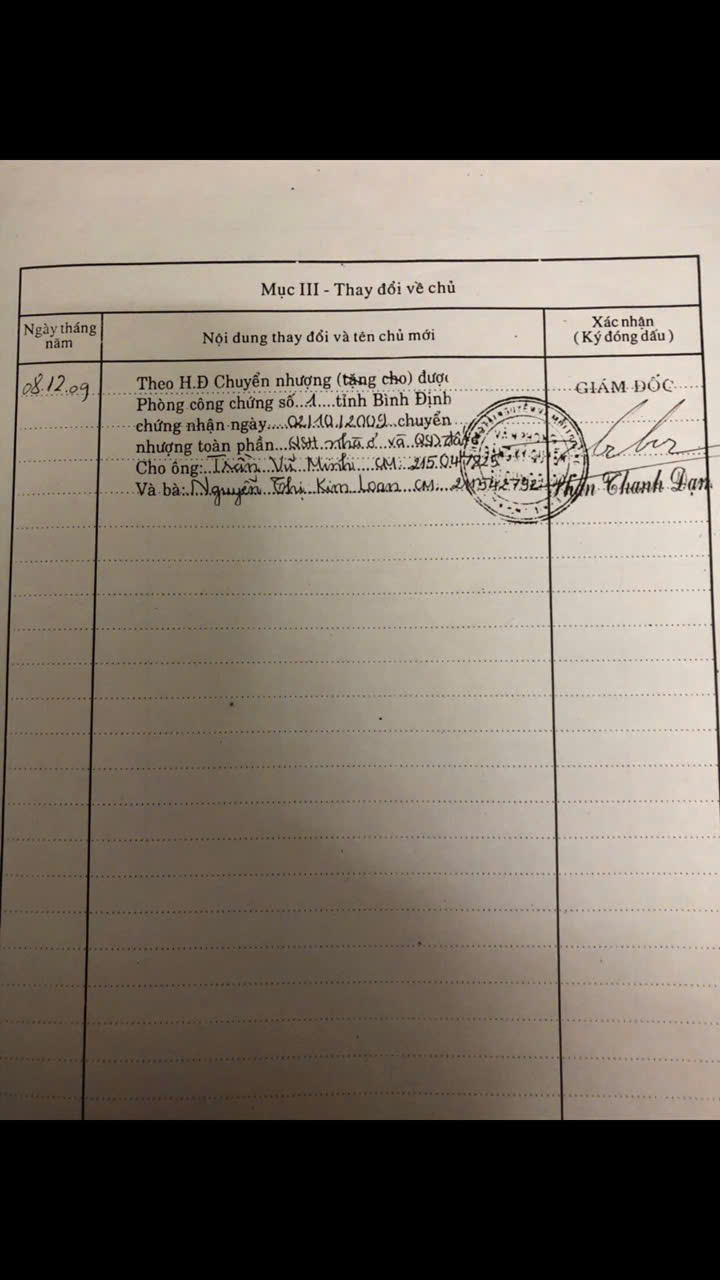 Mục III - Thay đổi về chủ
Ngày tháng năm
Nội dung thay đổi và tên chủ mới
Xác nhận
(Ký đóng dấu)
08.12.09
Theo H.Đ Chuyển nhượng (tặng cho) được
Phòng công chứng số 1 tỉnh Bình Định
chứng nhận ngày 02/10/2009 chuyển
nhượng toàn phần QSH nhà ở và QSD đất ở
Cho ông: Trần Vũ Minh CM: 215.047825
Và bà: Nguyễn Thị Kim Loan CM:
GIÁM ĐỐC
Thanh Dạn